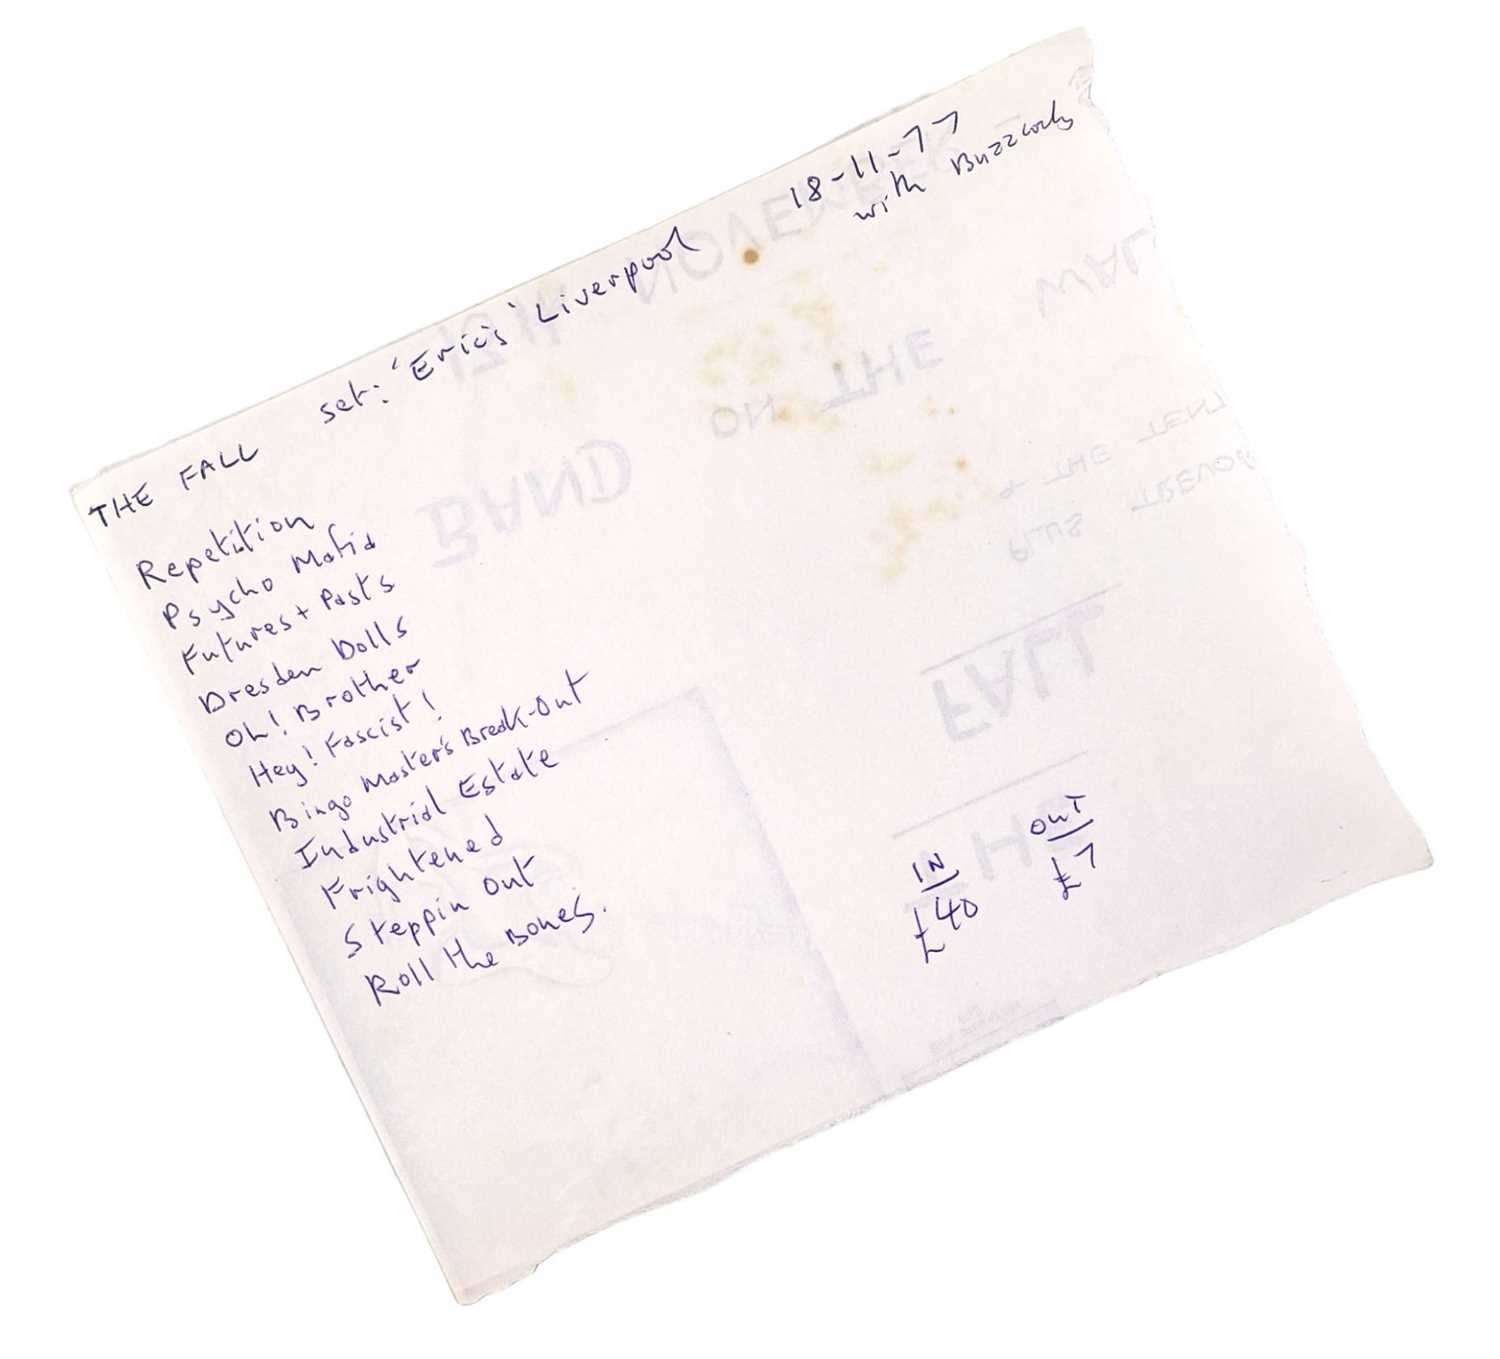 THE FALL set: 'Eric's' Liverpool 18-11-77
with Buzzcocks
Repetition
Psycho Mafia
Futures + Pasts
Dresden Dolls
Oh! Brother
Hey! Fascist!
Bingo Master's Break-Out
Industrial Estate
Frightened
Steppin Out
Roll the Bones.
IN OUT
£40 £7
NOVEMBER
BAND ON THE WALL
FALL
PLUS TREVOR
+ THE TENT